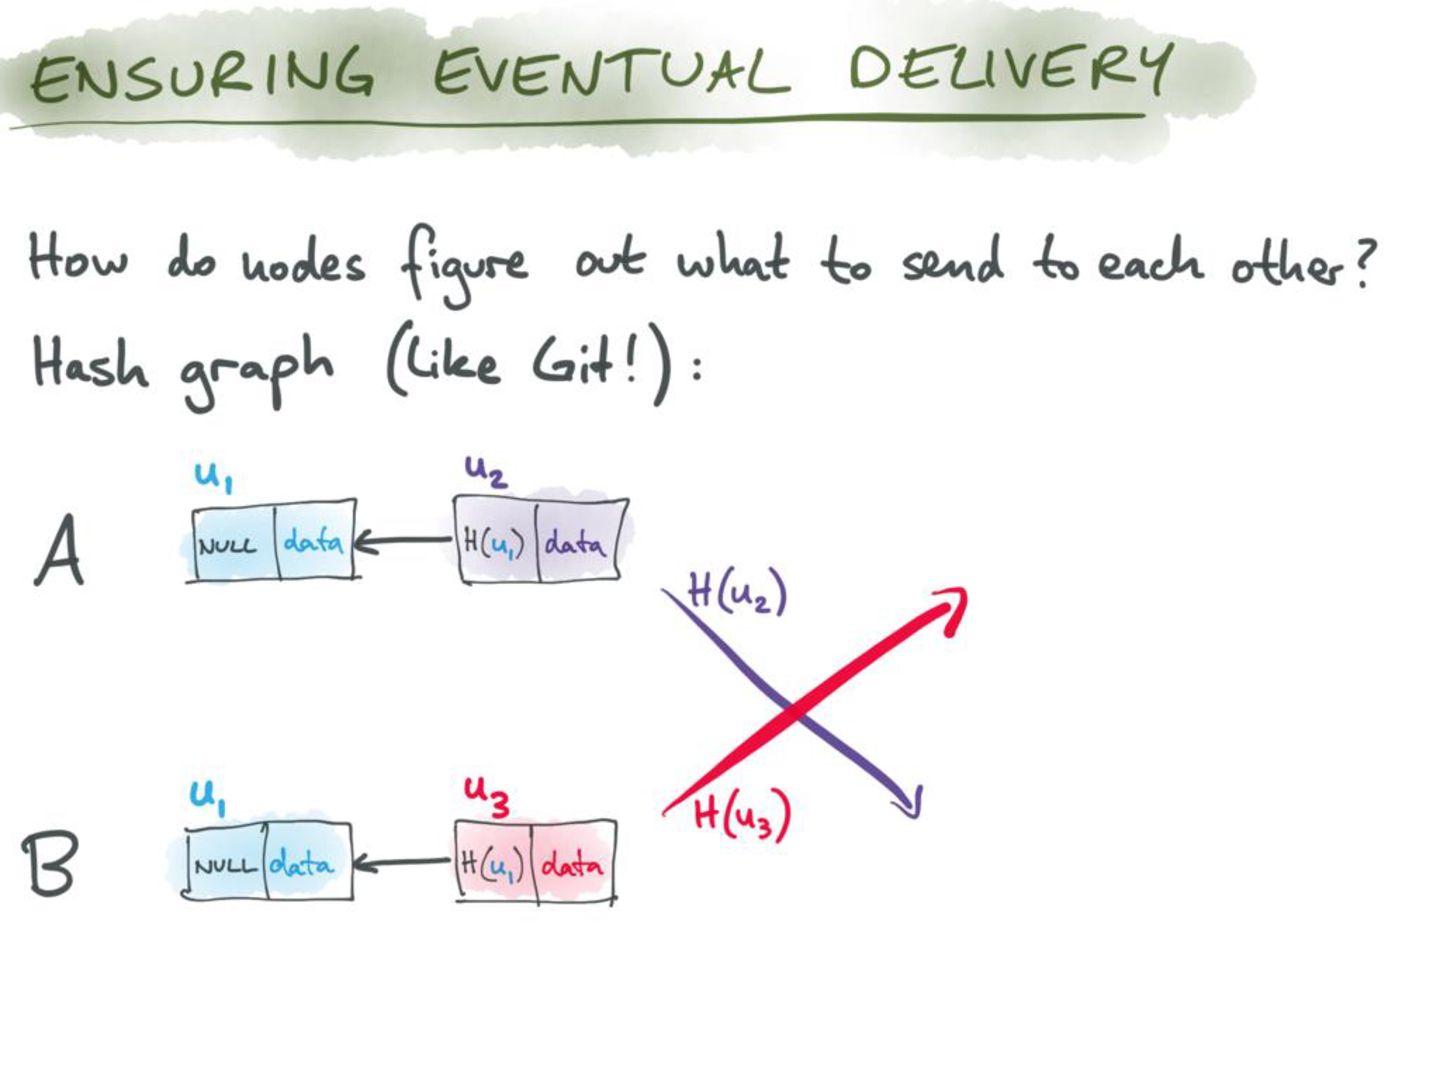 ENSURING EVENTUAL DELIVERY
How do nodes figure out what to send to each other?
Hash graph (like Git!):
u₁
u₂
A
NULL data
H(u₁) data
H(u₂)
u₁
u₃
H(u₃)
B
NULL data
H(u₁) data